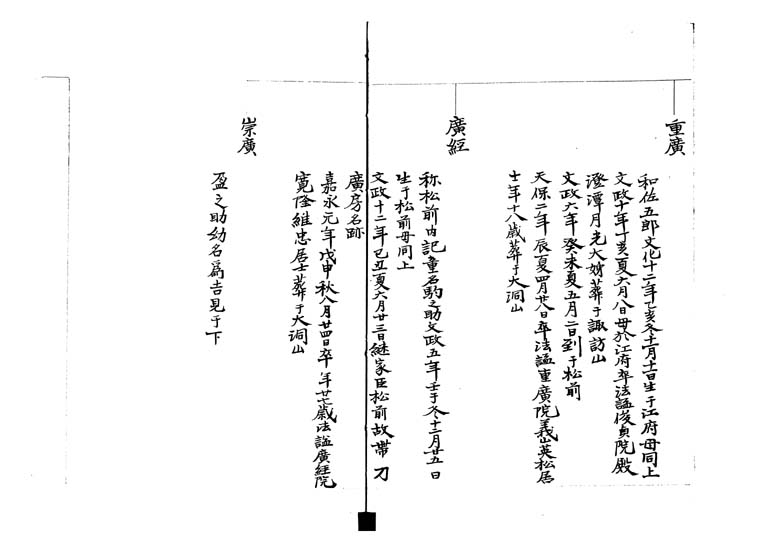 重廣
和佐五郎文化十二年乙亥冬十一月十一日生于江府母同上
文政十年丁亥夏六月八日母於江府卒法諡俊貞院殿
澄潭月光大姉葬于諏訪山
文政六年癸未夏五月二日到于松前
天保三年辰夏四月廿八日卒法諡重廣院義岱英松居
士年十八歳葬于大洞山
廣經
称松前内記童名駒之助文政五年壬午冬十二月廿五日
生于松前母同上
文政十二年己丑夏六月廿三日継家臣松前故帯刀
廣房名跡
嘉永元年戊申秋八月廿四日卒年廿七歳法諡廣経院
寛隆維忠居士葬于大洞山
崇廣
盈之助幼名為吉見于下